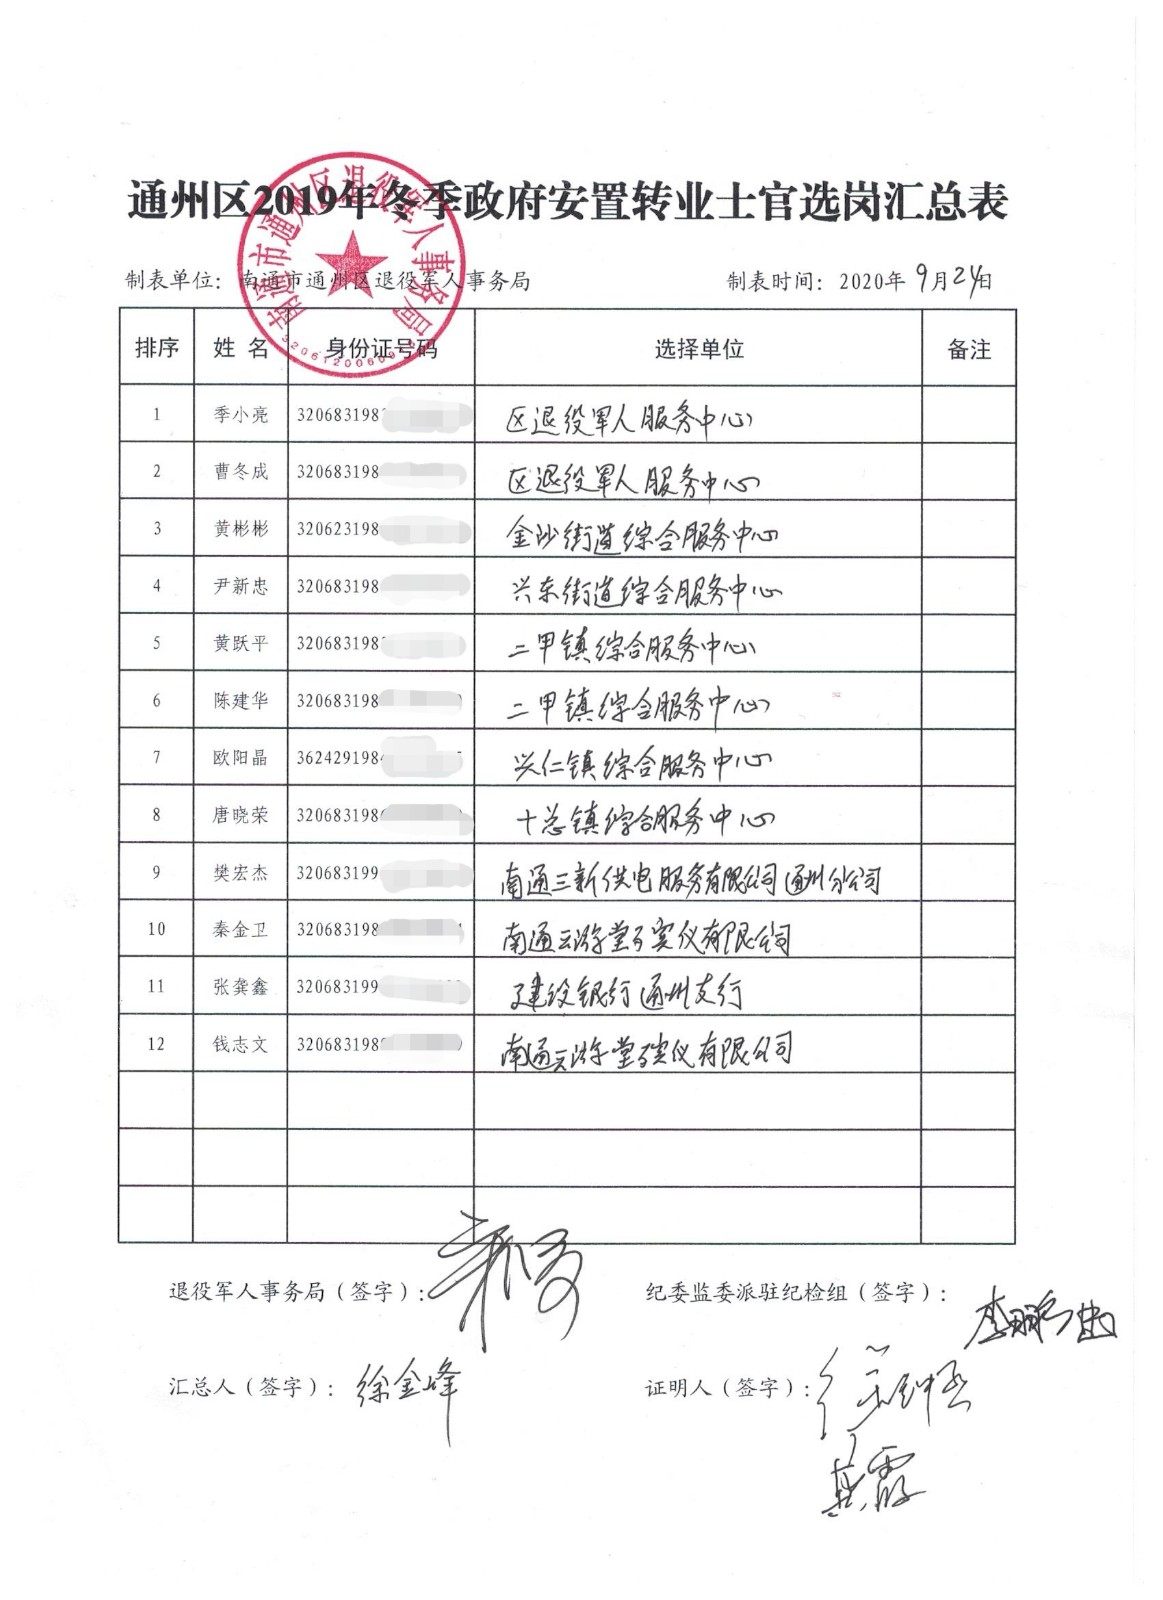 通州区2019年冬季政府安置转业士官选岗汇总表
南通市通州区退役军人事务局
制表单位：南通市通州区退役军人事务局 制表时间：2020年9月24日
排序 姓名 身份证号码 选择单位 备注
1 季小亮 320683198 区退役军人服务中心
2 曹冬成 320683198 区退役军人服务中心
3 黄彬彬 320623198 金沙街道综合服务中心
4 尹新忠 320683198 兴东街道综合服务中心
5 黄跃平 320683198 二甲镇综合服务中心
6 陈建华 320683198 二甲镇综合服务中心
7 欧阳晶 362429198 兴仁镇综合服务中心
8 唐晓荣 320683198 十总镇综合服务中心
9 樊宏杰 320683199 南通三新供电服务有限公司通州分公司
10 秦金卫 320683198 南通云游堂殡仪有限公司
11 张龚鑫 320683199 建设银行通州支行
12 钱志文 320683198 南通云游堂殡仪有限公司
退役军人事务局（签字）： 纪委监委派驻纪检组（签字）：
汇总人（签字）：徐金峰 证明人（签字）：